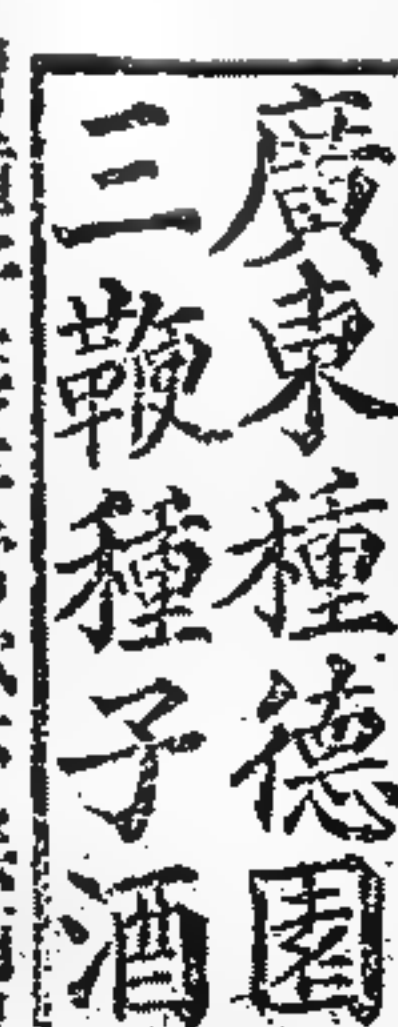 廣東種德園
三鞭種子酒